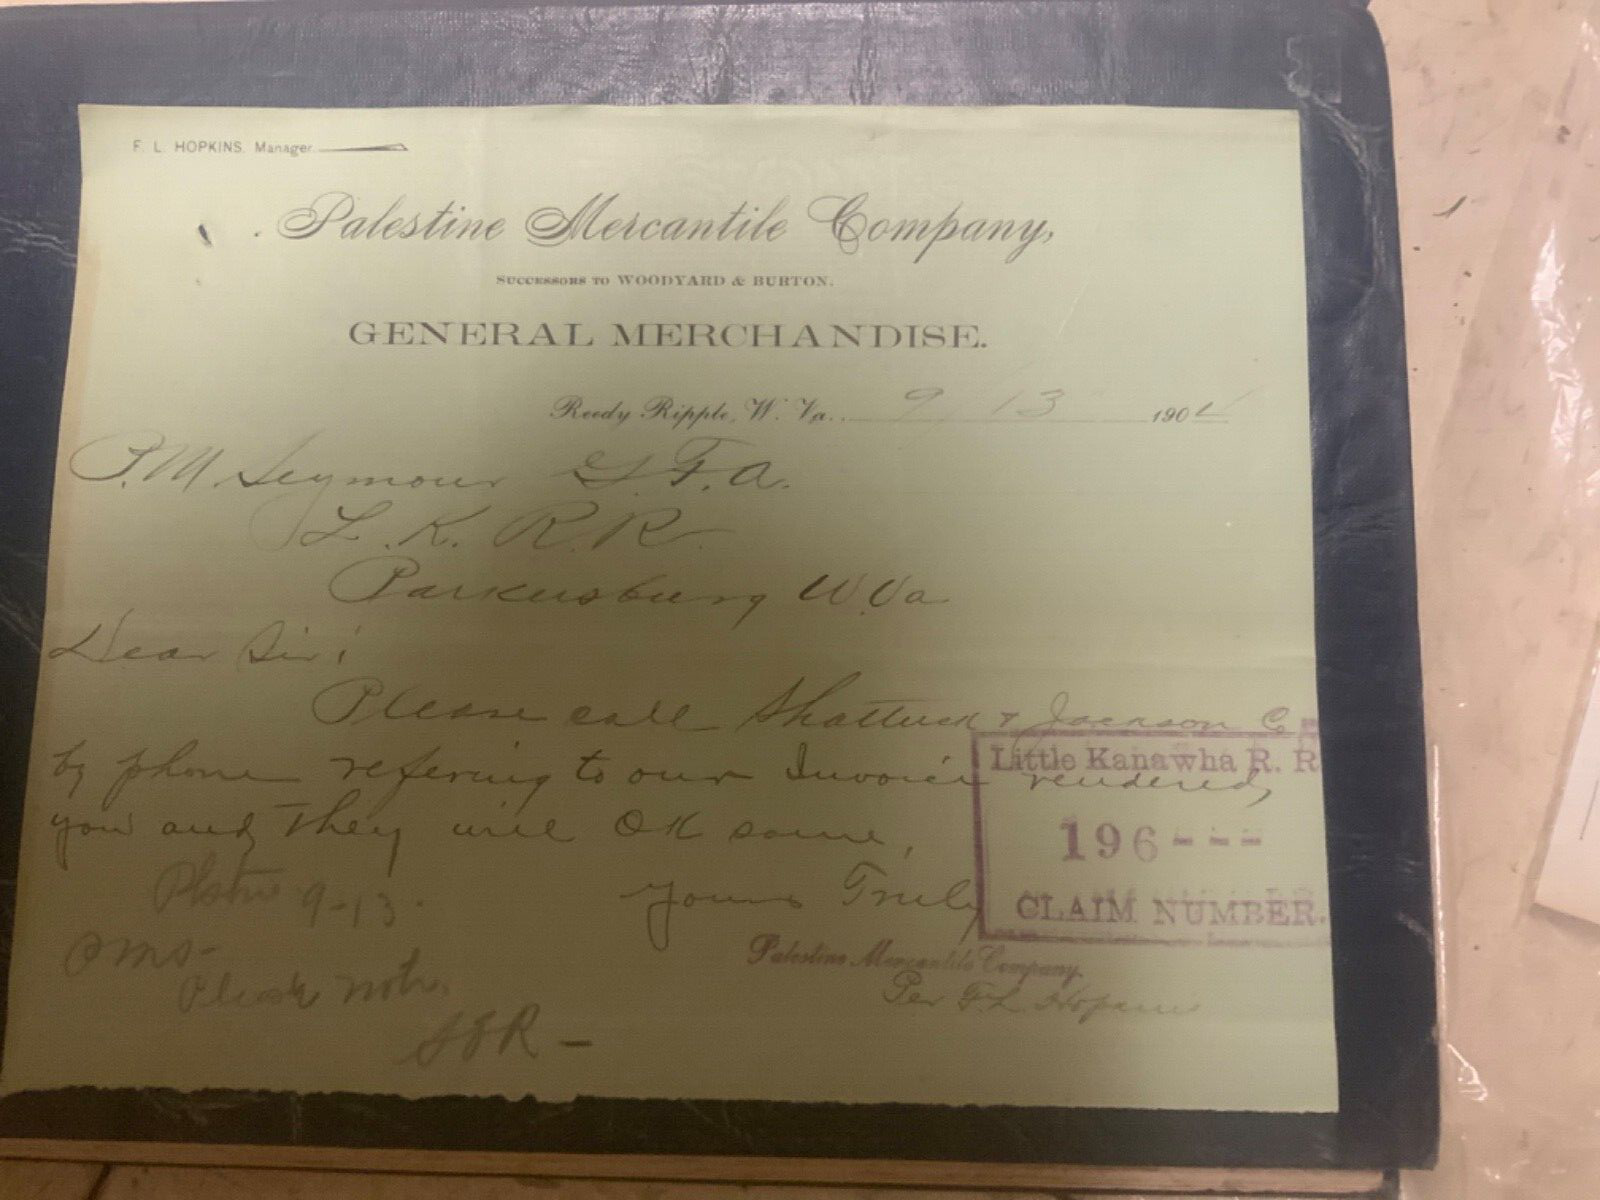 F. L. HOPKINS. Manager.
Palestine Mercantile Company,
SUCCESSORS TO WOODYARD & BURTON.
GENERAL MERCHANDISE.
Reedy Ripple, W. Va. 9/13 1904
P.M. Seymour G.F.A.
L.K. R.R.
Parkersburg W.Va
Dear Sir:
Please call Shattuck & Jackson Co
by phone refering to our Invoice rendered,
you and they will OK same,
Yours Truly
Little Kanawha R. R.
196---
CLAIM NUMBER.
Palestine Mercantile Company,
Per F.L. Hopkins
9-13.
PMS-
Please note.